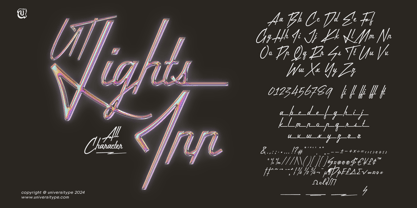 UT
Lights
Inn
All
Character
Aa Bb Cc Dd Ee Ff
Gg Hh Ii Jj Kk Ll Mm Nn
Oo Pp Qq Rr Ss Tt Uu Vv
Ww Xx Yy Zz
0123456789
a b c d e f g h i j
k l m n o p q r s t
u v w x y z
copyright @ universitype 2024
www.universitype.com